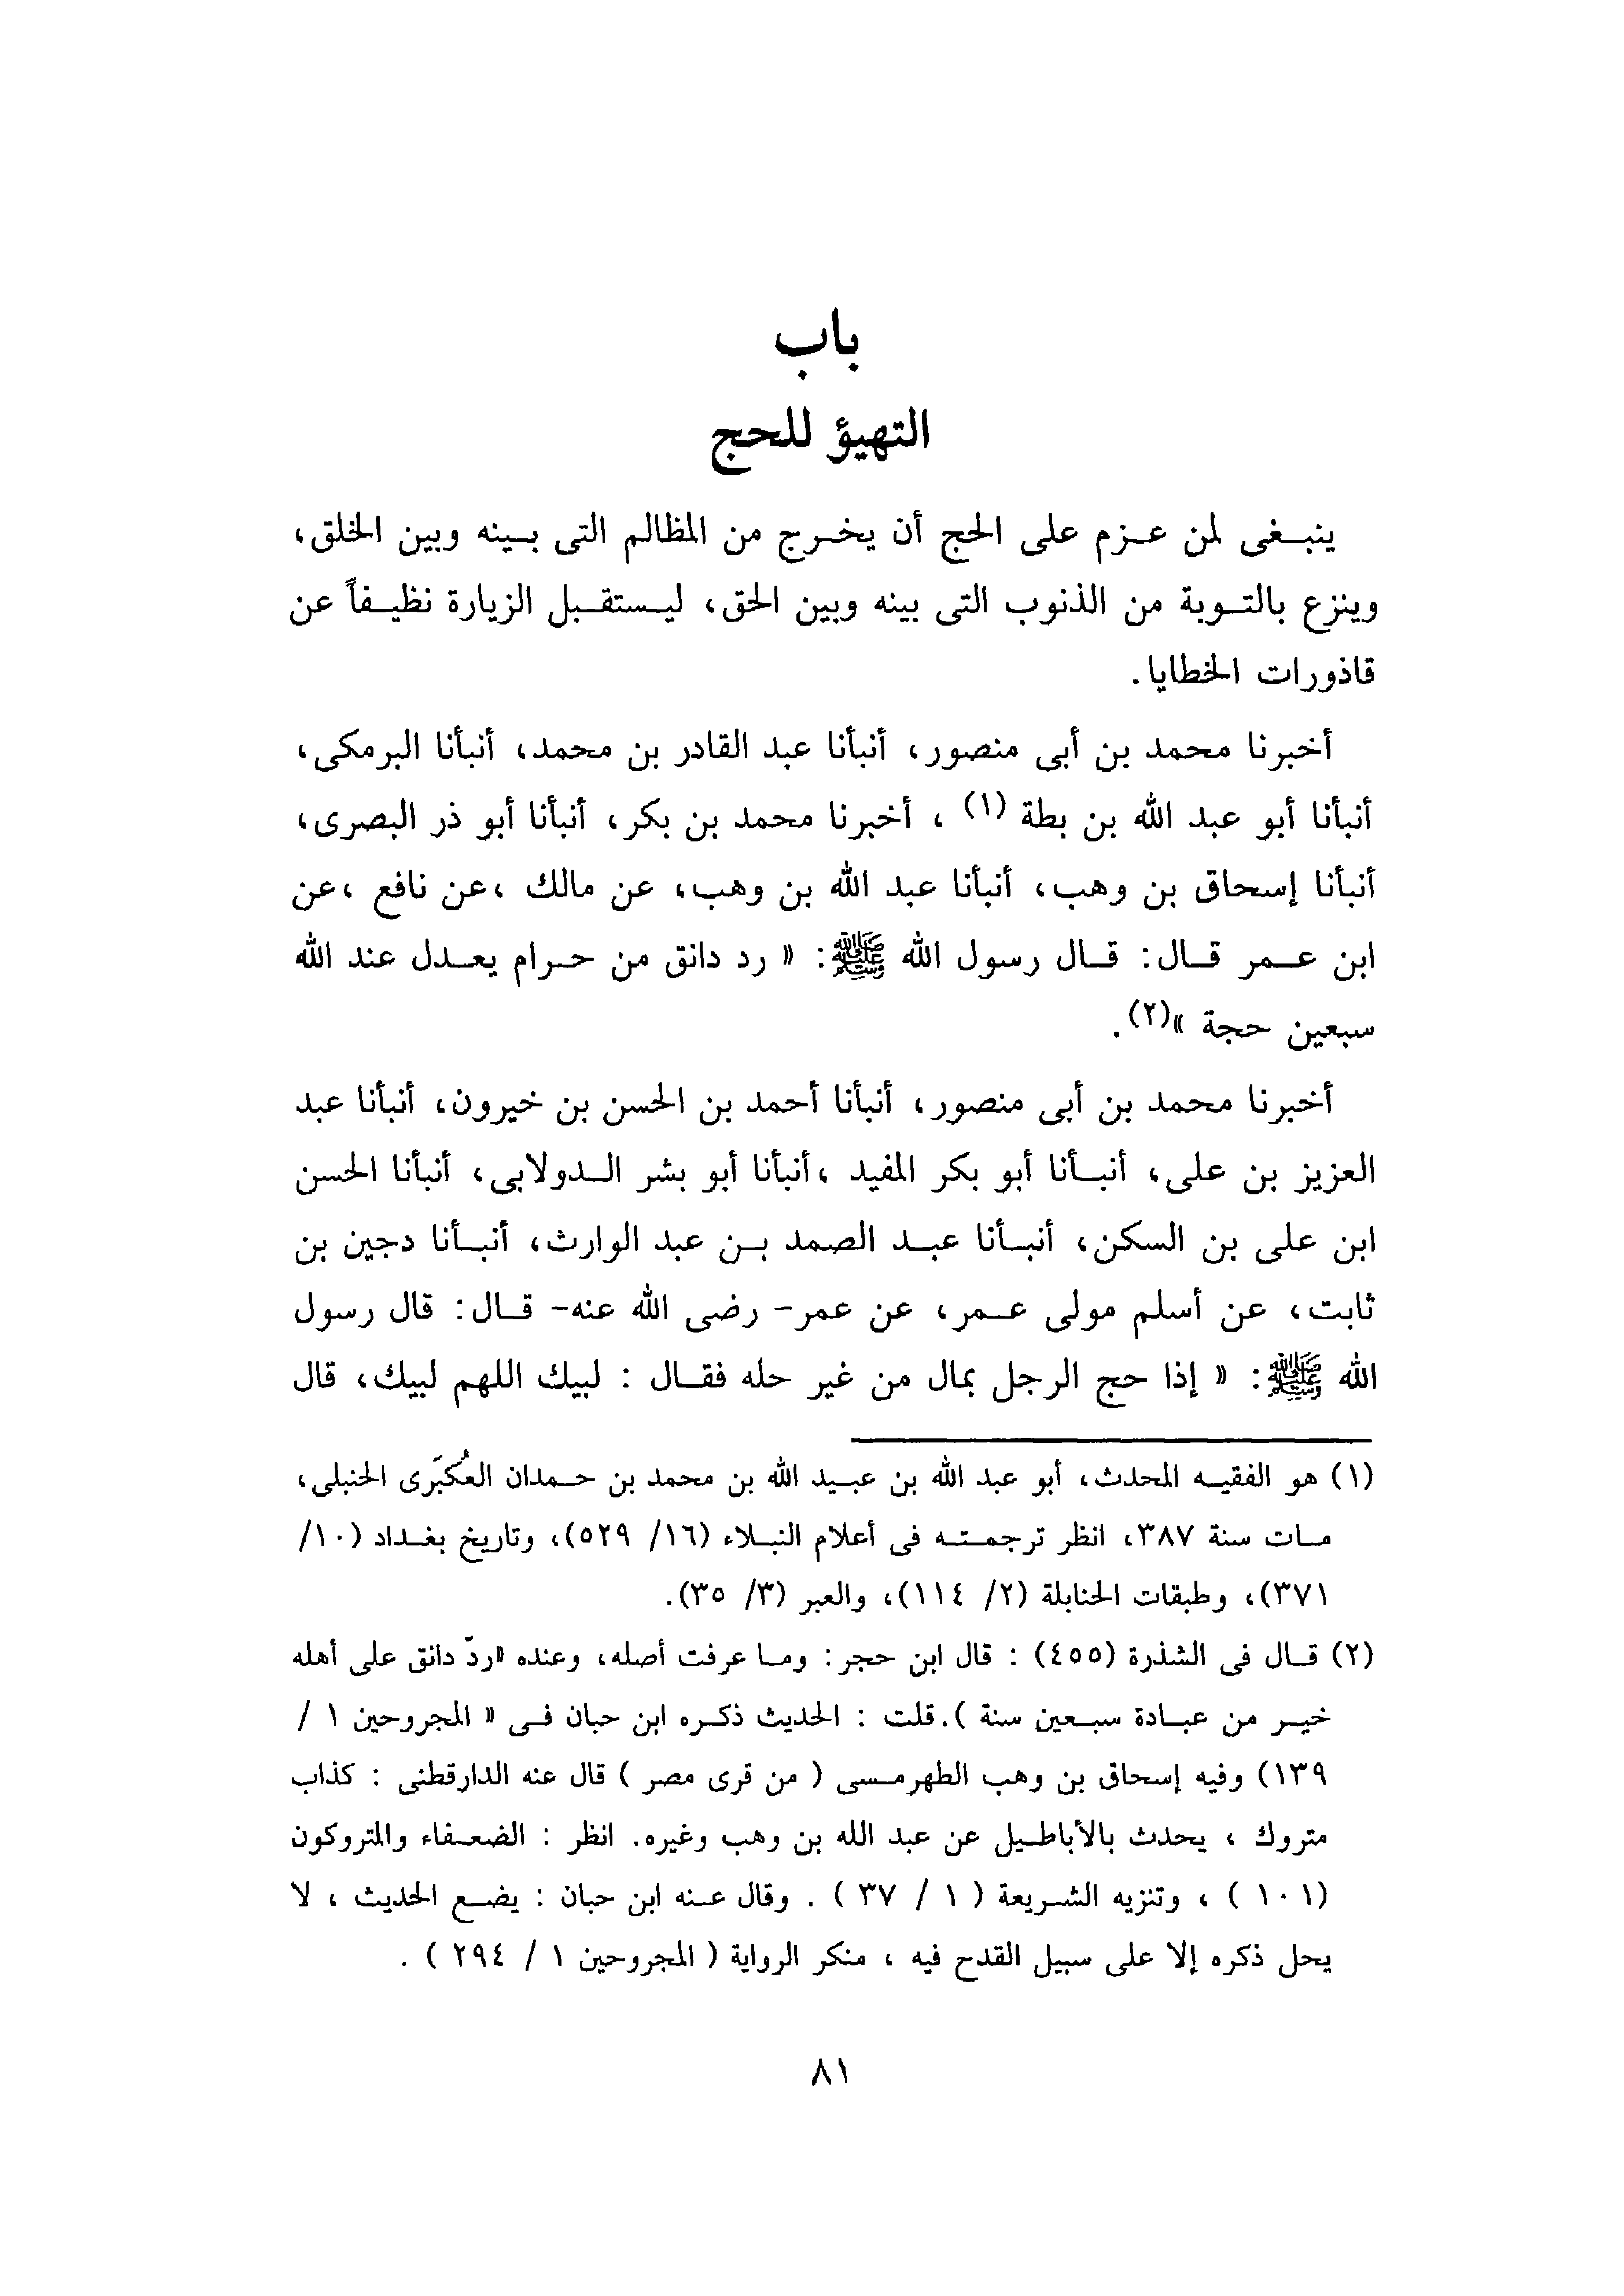 باب
التهيؤ للحج
ينبغى لمن عزم على الحج أن يخرج من المظالم التى بينه وبين الخلق،
وينزع بالتوبة من الذنوب التى بينه وبين الحق، ليستقبل الزيارة نظيفاً عن
قاذورات الخطايا.
أخبرنا محمد بن أبى منصور، أنبأنا عبد القادر بن محمد، أنبأنا البرمكى،
أنبأنا أبو عبد الله بن بطة (١) ، أخبرنا محمد بن بكر، أنبأنا أبو ذر البصرى،
أنبأنا إسحاق بن وهب، أنبأنا عبد الله بن وهب، عن مالك ،عن نافع ،عن
ابن عمر قال: قال رسول الله ﷺ: « رد دانق من حرام يعدل عند الله
سبعين حجة »(٢).
أخبرنا محمد بن أبى منصور، أنبأنا أحمد بن الحسن بن خيرون، أنبأنا عبد
العزيز بن على، أنبأنا أبو بكر المفيد ،أنبأنا أبو بشر الدولابى، أنبأنا الحسن
ابن على بن السكن، أنبأنا عبد الصمد بن عبد الوارث، أنبأنا دجين بن
ثابت، عن أسلم مولى عمر، عن عمر- رضى الله عنه- قال: قال رسول
الله ﷺ: « إذا حج الرجل بمال من غير حله فقال : لبيك اللهم لبيك، قال
(١) هو الفقيه المحدث، أبو عبد الله بن عبيد الله بن محمد بن حمدان العُكبَرى الحنبلى،
مات سنة ٣٨٧، انظر ترجمته فى أعلام النبلاء (١٦/ ٥٢٩)، وتاريخ بغداد (١٠/
٣٧١)، وطبقات الحنابلة (٢/ ١١٤)، والعبر (٣/ ٣٥).
(٢) قال فى الشذرة (٤٥٥) : قال ابن حجر: وما عرفت أصله، وعنده «ردّ دانق على أهله
خير من عبادة سبعين سنة ).قلت : الحديث ذكره ابن حبان فى « المجروحين ١ /
١٣٩) وفيه إسحاق بن وهب الطهرمسى ( من قرى مصر ) قال عنه الدارقطنى : كذاب
متروك ، يحدث بالأباطيل عن عبد الله بن وهب وغيره. انظر : الضعفاء والمتروكون
(١٠١ ) ، وتنزيه الشريعة ( ١ / ٣٧ ) . وقال عنه ابن حبان : يضع الحديث ، لا
يحل ذكره إلا على سبيل القدح فيه ، منكر الرواية ( المجروحين ١ / ٢٩٤ ) .
٨١